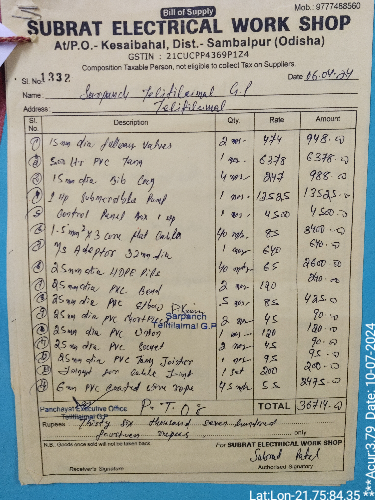 Bill of Supply
Mob.: 9777488560
SUBRAT ELECTRICAL WORK SHOP
At/P.O.- Kesaibahal, Dist.- Sambalpur (Odisha)
GSTIN : 21CUCPP4369P1Z4
Composition Taxable Person, not eligible to collect Tax on Suppliers
Sl. No. 1332 Date 06-04-24
Name Sarpanch Telitilaimal G.P
Address Telitilaimal
Sl. No. Description Qty. Rate Amount
1 15mm dia fullway valves 2 nos- 474 948.00
2 500 Ltr PVC Tank 1 nos- 6378 6378.00
3 15mm dia Bib Cock 4 nos- 247 988.00
4 1 Hp Submersible Pump 1 nos- 13525 13525.00
5 Control Panel Box 1 Hp 1 nos- 4500 4500.00
6 1.5mm² X 3 core flat Cable 40 mtr- 85 3400.00
7 Adaptor 32mm dia 1 nos- 640 640.00
8 25mm dia HDPE Pipe 40 mtr- 65 2600.00
9 25mm dia PVC Bend 2 nos- 120 240.00
10 25mm dia PVC Elbow 5 nos- 85 425.00
11 25mm dia PVC 2 nos- 45 90.00
12 25mm dia PVC Union 1 nos- 120 120.00
13 25mm dia PVC Socket 2 nos- 45 90.00
14 25mm dia PVC Tank 1 nos- 95 95.00
15 for Cable Joint 1 set 200 200.00
16 6mm PVC coated wire rope 45 mtr 55 2475.00
Sarpanch
Telitilaimal G.P
Panchayat Executive Office
Telitilaimal G.P
TOTAL 36714.00
Rupees Thirty six thousand seven hundred
fourteen rupees only
N.B. Goods once sold will not be taken back
For SUBRAT ELECTRICAL WORK SHOP
Subrat Patel
Receiver's Signature Authorised Signatory
Lat:Lon-21.75:84.35
***Acur:3.79 Date: 10-07-2024